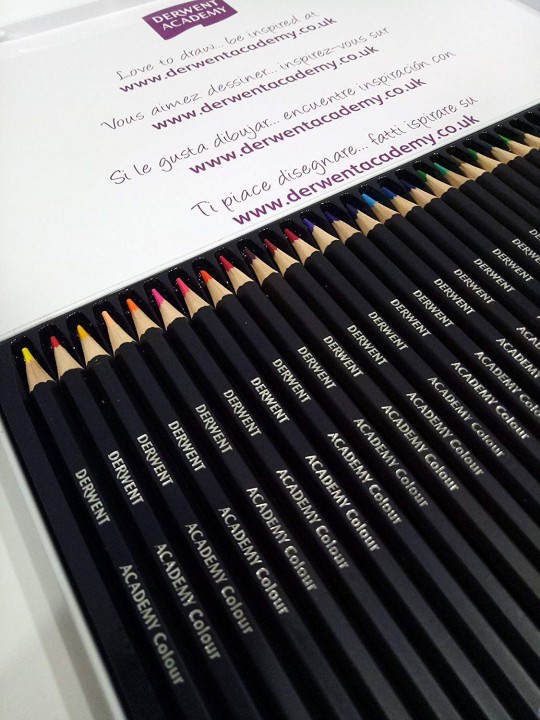 DERWENT
ACADEMY
Love to draw... be inspired at
www.derwentacademy.co.uk
Vous aimez dessiner... inspirez-vous sur
www.derwentacademy.co.uk
Si le gusta dibujar... encuentre inspiración con
www.derwentacademy.co.uk
Ti piace disegnare... fatti ispirare su
www.derwentacademy.co.uk
DERWENT ACADEMY Colour
DERWENT ACADEMY Colour
DERWENT ACADEMY Colour
DERWENT ACADEMY Colour
DERWENT ACADEMY Colour
DERWENT ACADEMY Colour
DERWENT ACADEMY Colour
DERWENT ACADEMY Colour
DERWENT ACADEMY Colour
DERWENT ACADEMY Colour
DERWENT ACADEMY Colour
DERWENT ACADEMY Colour
DERWENT ACADEMY Colour
DERWENT ACADEMY
DERWENT ACADEMY
DERWENT
DERWENT